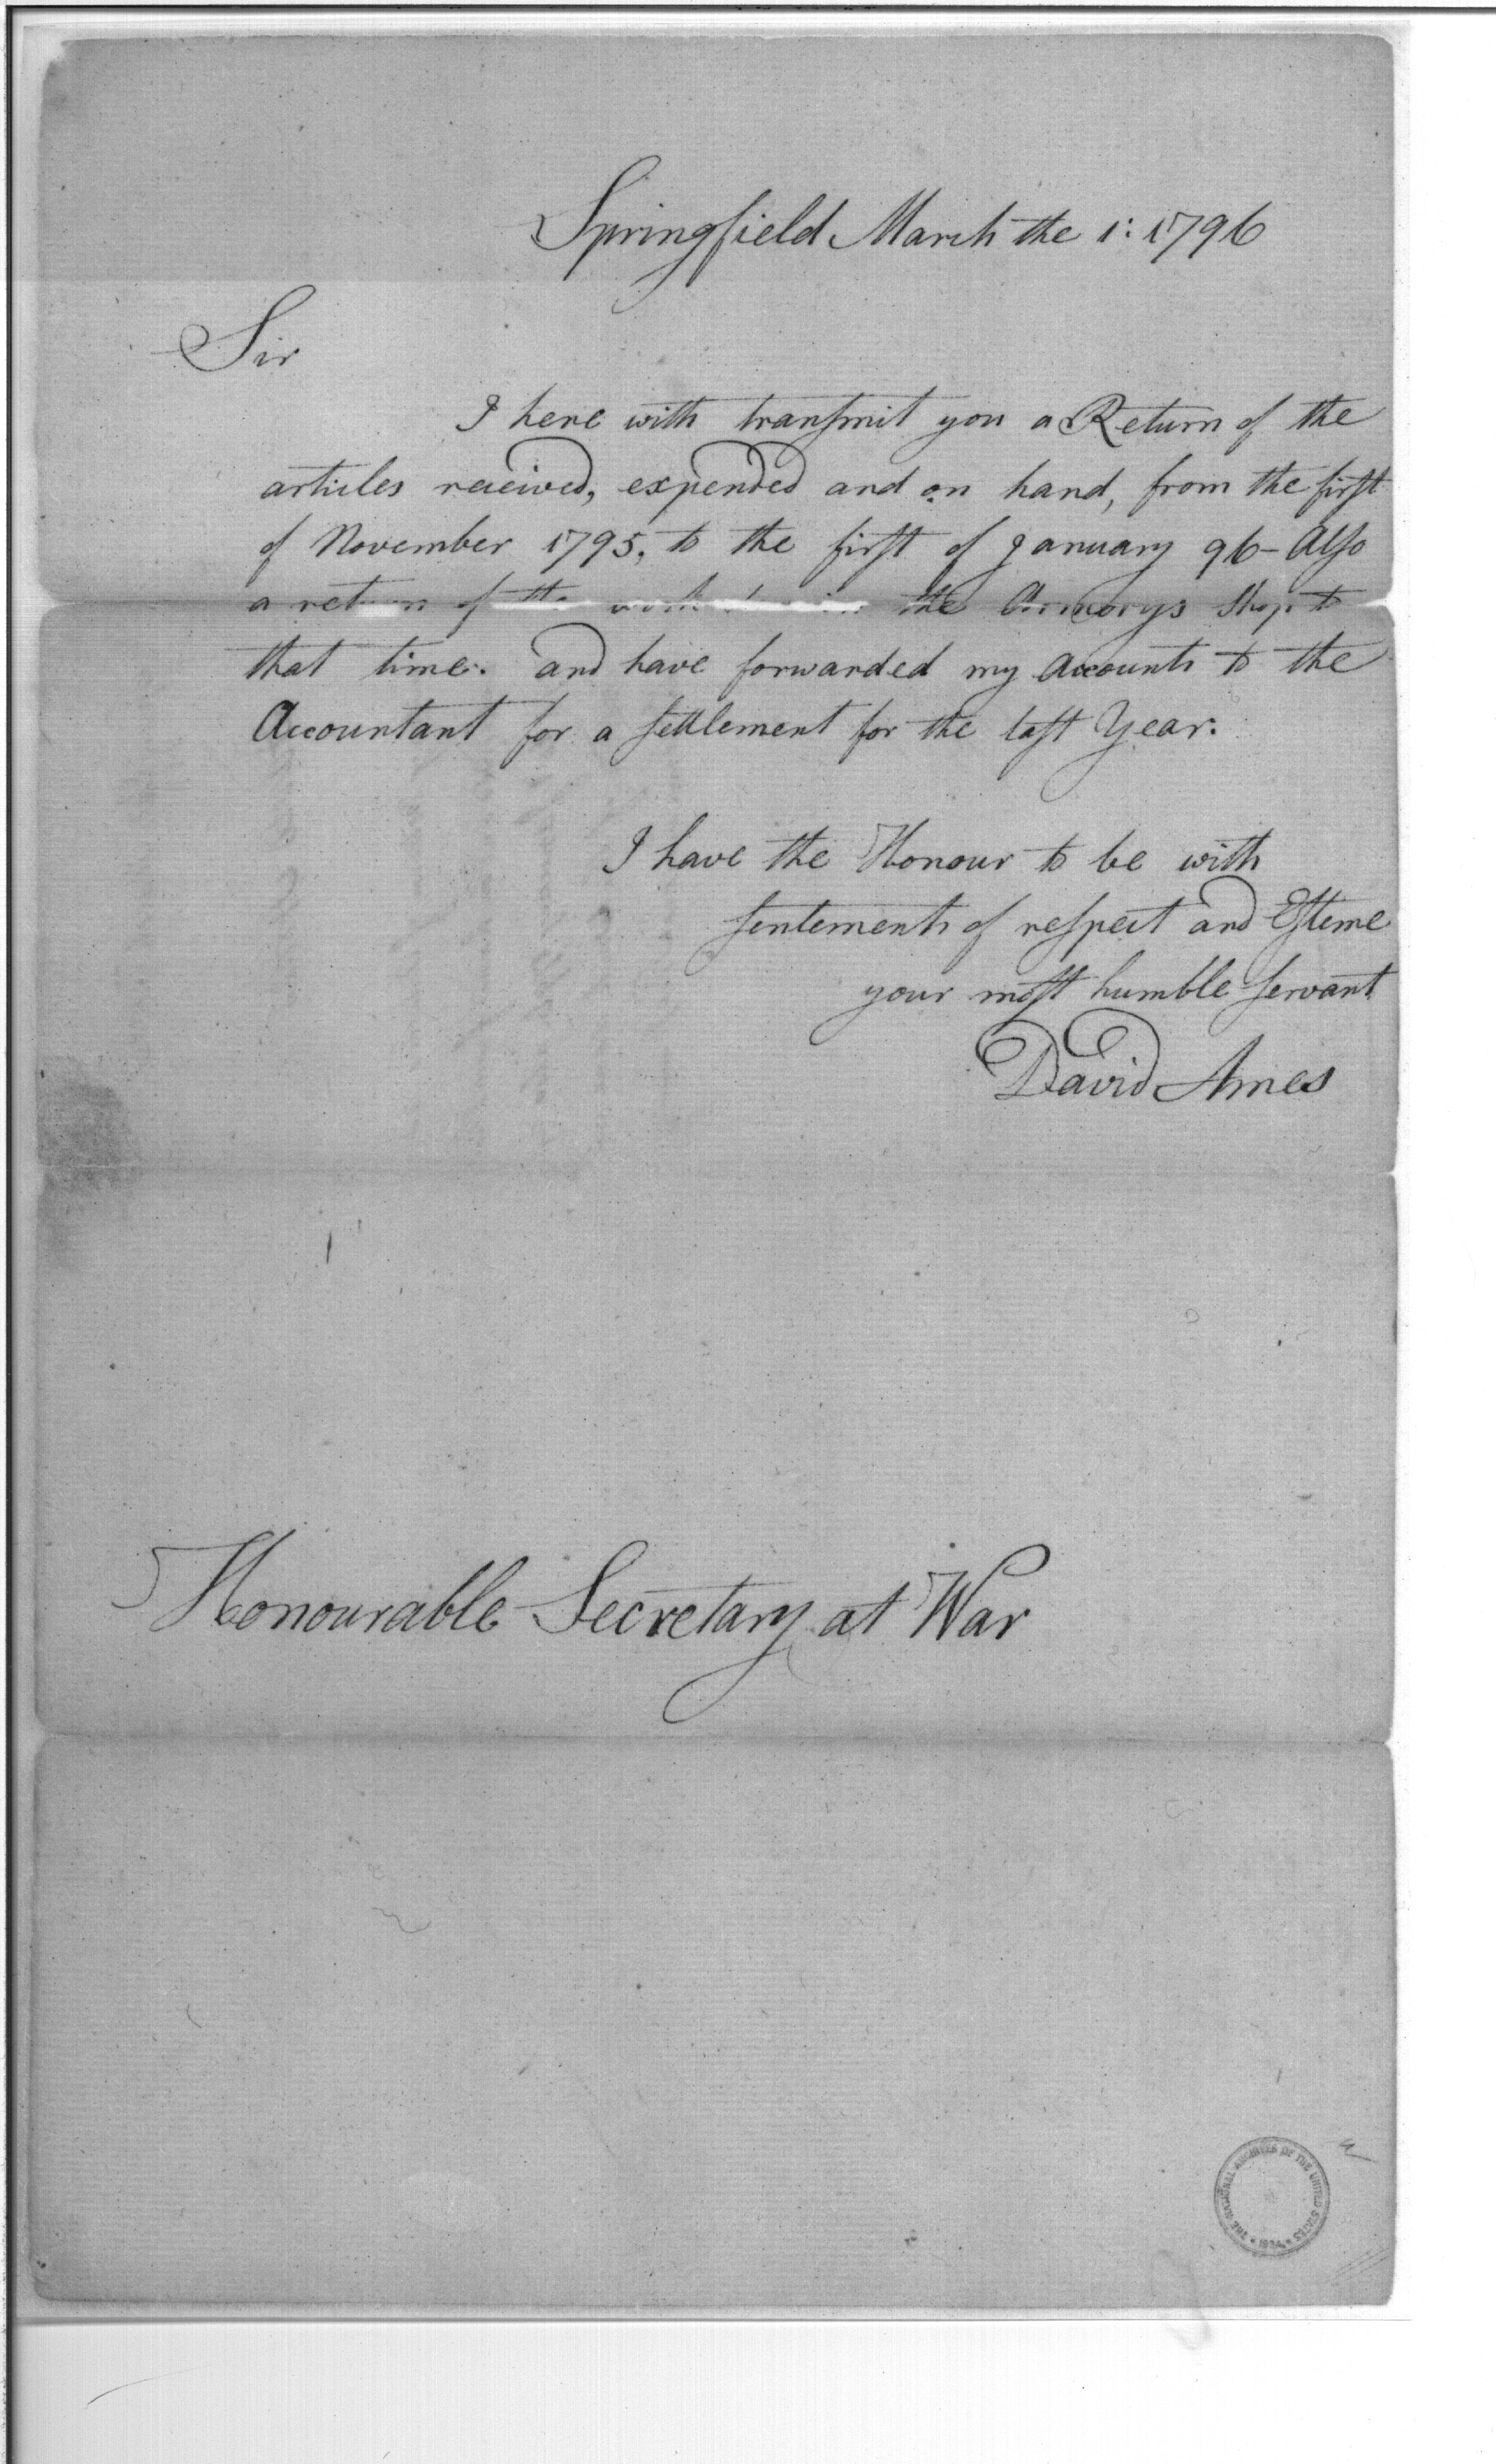 Springfield March the 1: 1796
Sir
I here with transmit you a Return of the
articles received, expended and on hand, from the first
of November 1795, to the first of January 96 - Also
a return of the work the Armorys Shop to
that time. and have forwarded my Accounts to the
Accountant for a settlement for the last Year.
I have the Honour to be with
sentements of respect and Esteme
your most humble servant
David Ames
Honourable Secretary at War
THE NATIONAL ARCHIVES OF THE UNITED STATES
1934